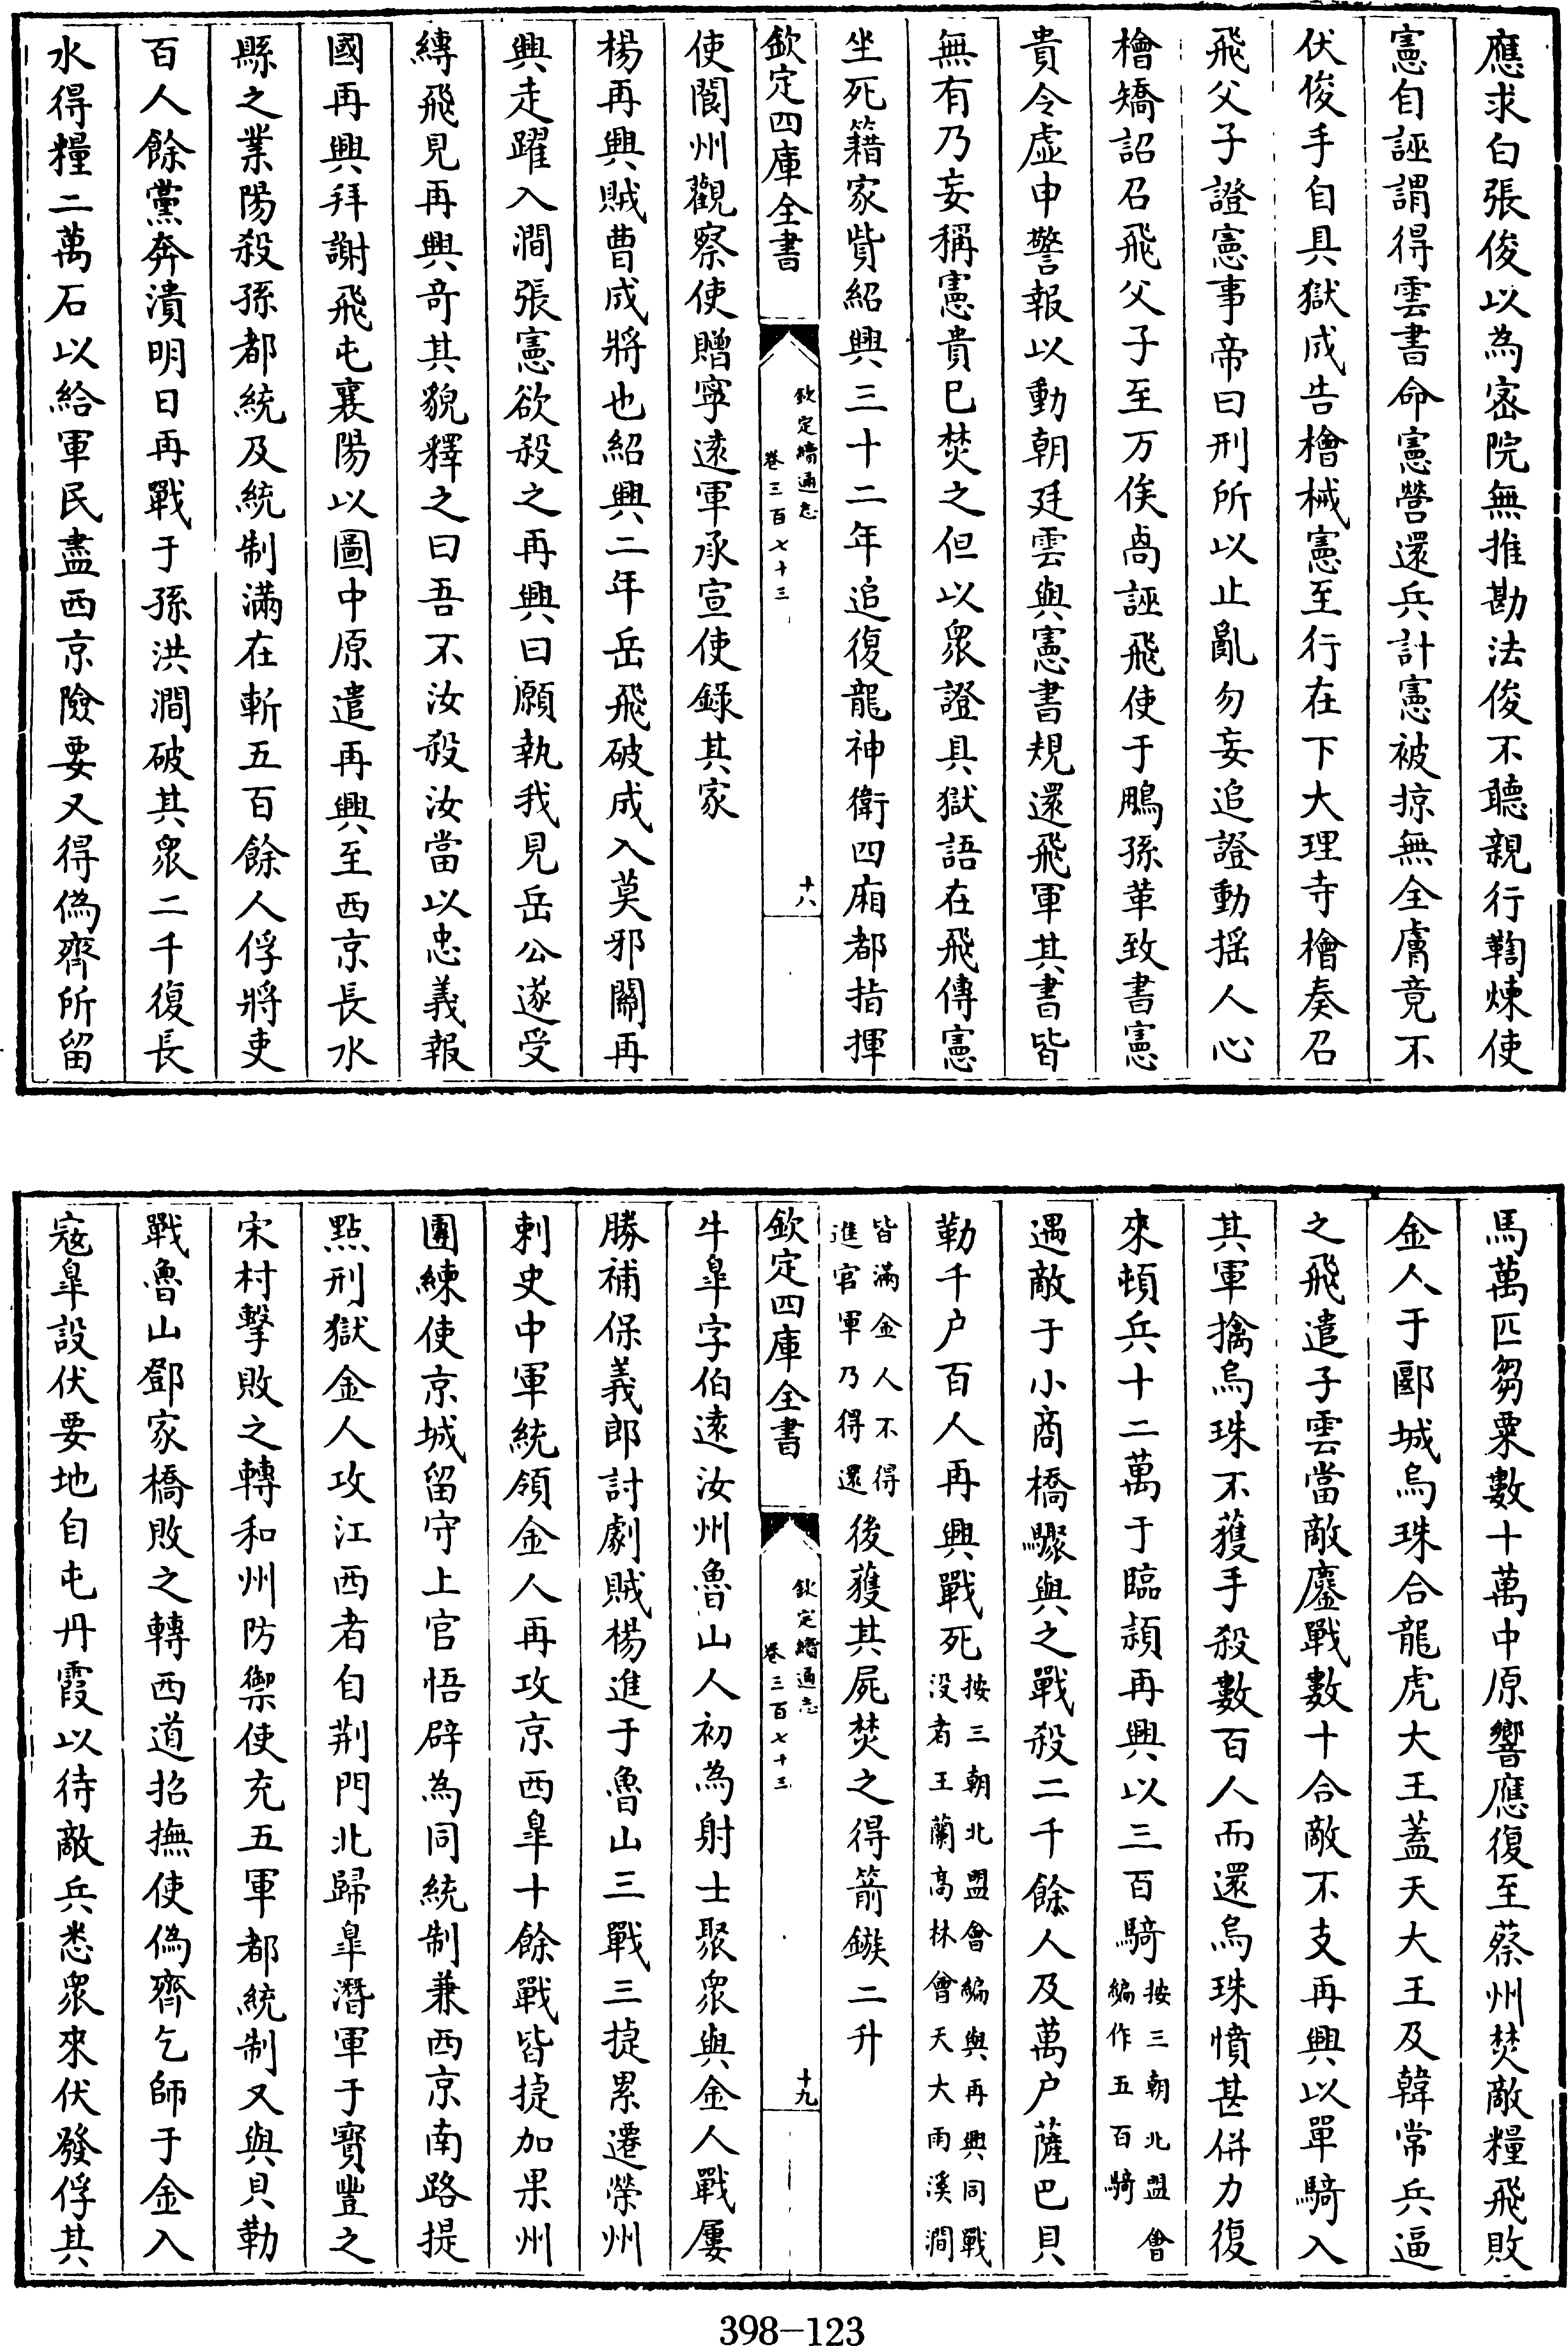 應求白張俊以為密院無推勘法俊不聽親行鞫煉使
憲自誣謂得雲書命憲營還兵計憲被掠無全膚竟不
伏俊手自具獄成告檜械憲至行在下大理寺檜奏召
飛父子證憲事帝曰刑所以止亂勿妄追證動摇人心
檜矯詔召飛父子至万俟卨誣飛使于鵬孫革致書憲
貴令虛申警報以動朝廷雲與憲書規還飛軍其書皆
無有乃妄稱憲貴已焚之但以眾證具獄語在飛傳憲
坐死籍家貲紹興三十二年追復龍神衛四廂都指揮
欽定四庫全書
欽定續通志
卷三百七十三
十八
使閬州觀察使贈寧遠軍承宣使錄其家
楊再興賊曹成將也紹興二年岳飛破成入莫邪關再
興走躍入澗張憲欲殺之再興曰願執我見岳公遂受
縛飛見再興奇其貌釋之曰吾不汝殺汝當以忠義報
國再興拜謝飛屯襄陽以圖中原遣再興至西京長水
縣之業陽殺孫都統及統制滿在斬五百餘人俘將吏
百人餘黨奔潰明日再戰于孫洪澗破其眾二千復長
水得糧二萬石以給軍民盡西京險要又得偽齊所留
馬萬匹芻粟數十萬中原響應復至蔡州焚敵糧飛敗
金人于郾城烏珠合龍虎大王蓋天大王及韓常兵逼
之飛遣子雲當敵鏖戰數十合敵不支再興以單騎入
其軍擒烏珠不獲手殺數百人而還烏珠憤甚併力復
來頓兵十二萬于臨潁再興以三百騎按三朝北盟會
編作五百騎
遇敵于小商橋驟與之戰殺二千餘人及萬户薩巴貝
勒千户百人再興戰死按三朝北盟會編與再興同戰
没者王蘭高林會天大雨溪澗
皆滿金人不得
進官軍乃得還後獲其屍焚之得箭鏃二升
欽定四庫全書
欽定續通志
卷三百七十三
十九
牛皐字伯遠汝州魯山人初為射士聚眾與金人戰屢
勝補保義郎討劇賊楊進于魯山三戰三捷累遷榮州
刺史中軍統領金人再攻京西皐十餘戰皆捷加果州
團練使京城留守上官悟辟為同統制兼西京南路提
點刑獄金人攻江西者自荆門北歸皐潛軍于寳豐之
宋村擊敗之轉和州防禦使充五軍都統制又與貝勒
戰魯山鄧家橋敗之轉西道招撫使偽齊乞師于金入
寇皐設伏要地自屯丹霞以待敵兵悉眾來伏發俘其
398—123